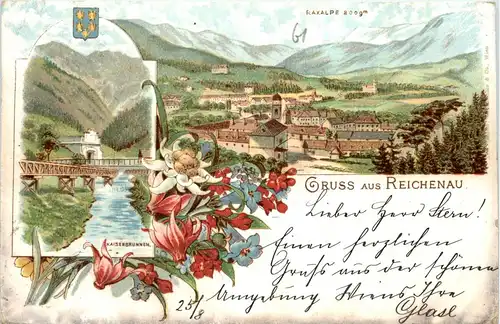 RAXALPE 2009m
61
GRUSS AUS REICHENAU.
KAISERBRUNNEN.
Lieber Herr Stern!
Einen herzlichen
Gruss aus der schönen
25/8 Umgebung Wiens Ihre
Glasl